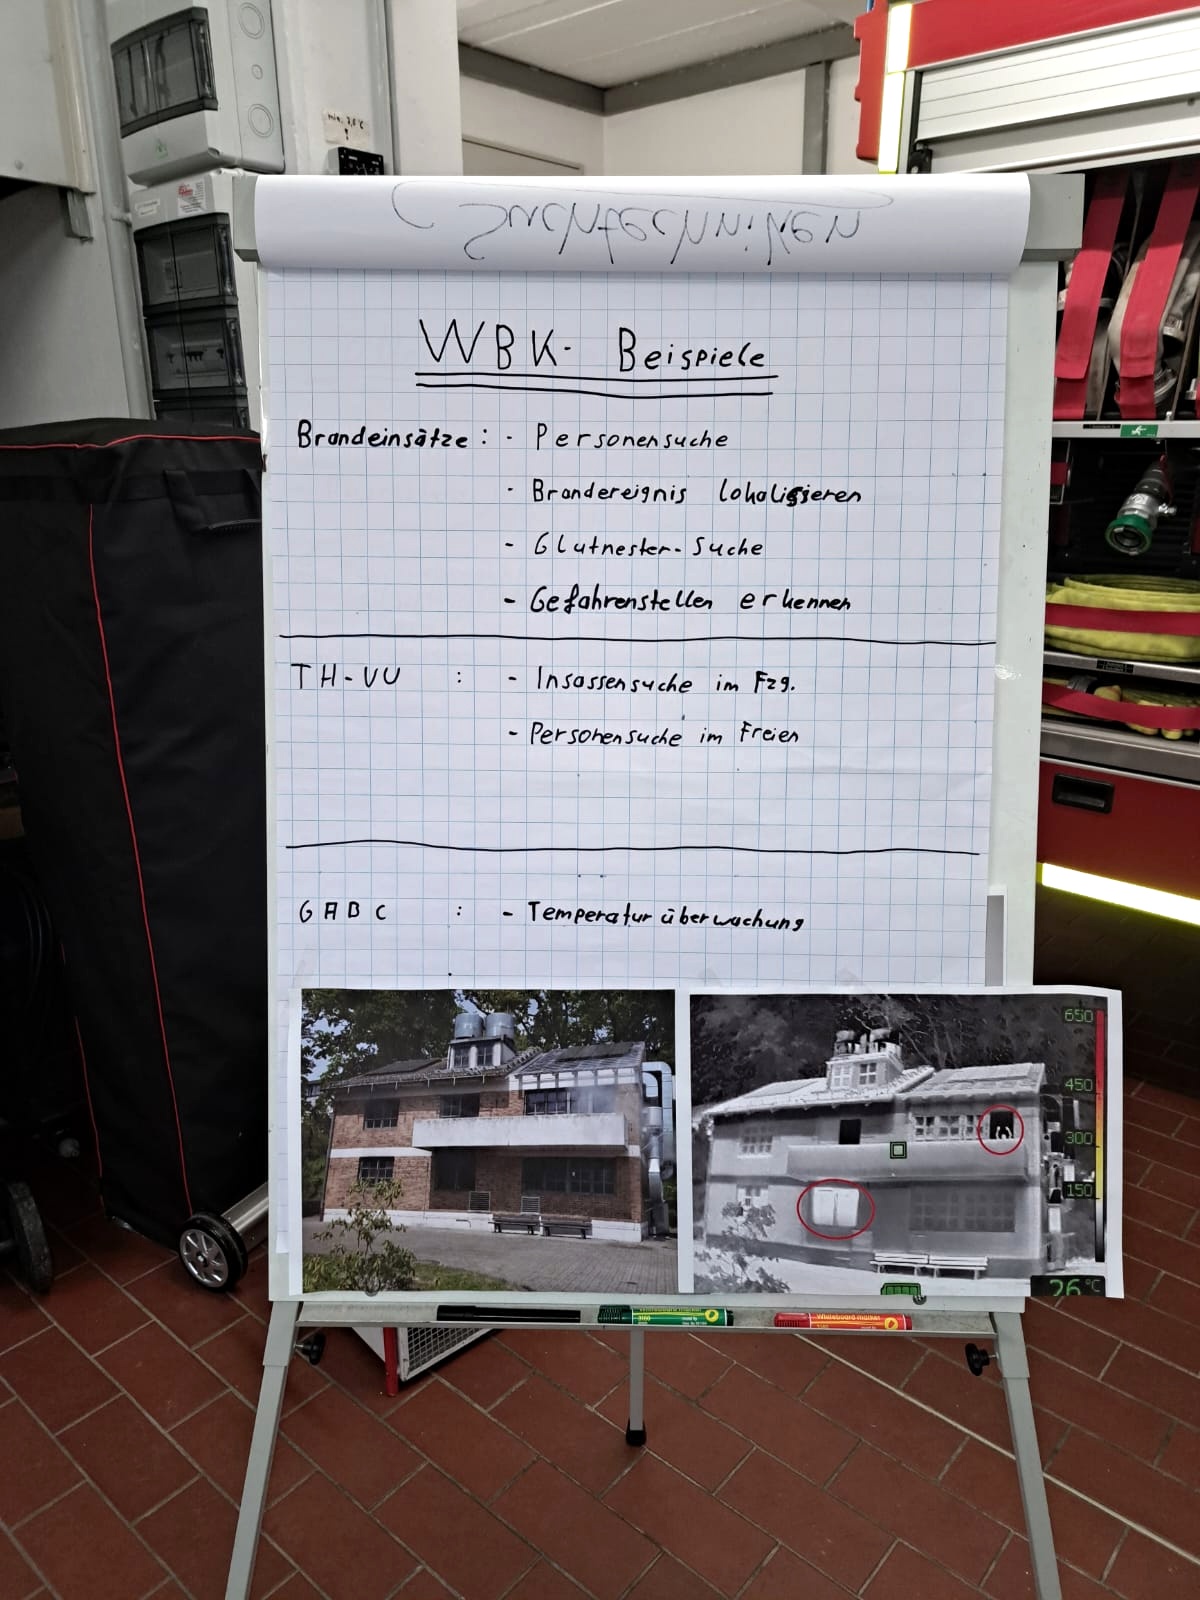 min. 7,5 °C
!
Suchtechniken
WBK- Beispiele
Brandeinsätze : - Personensuche
- Brandereignis lokalisieren
- Glutnester-Suche
- Gefahrenstellen erkennen
TH-VU : - Insassensuche im Fzg.
- Personensuche im Freien
GABC : - Temperaturüberwachung
650
450
300
150
26 °C
Whiteboard marker